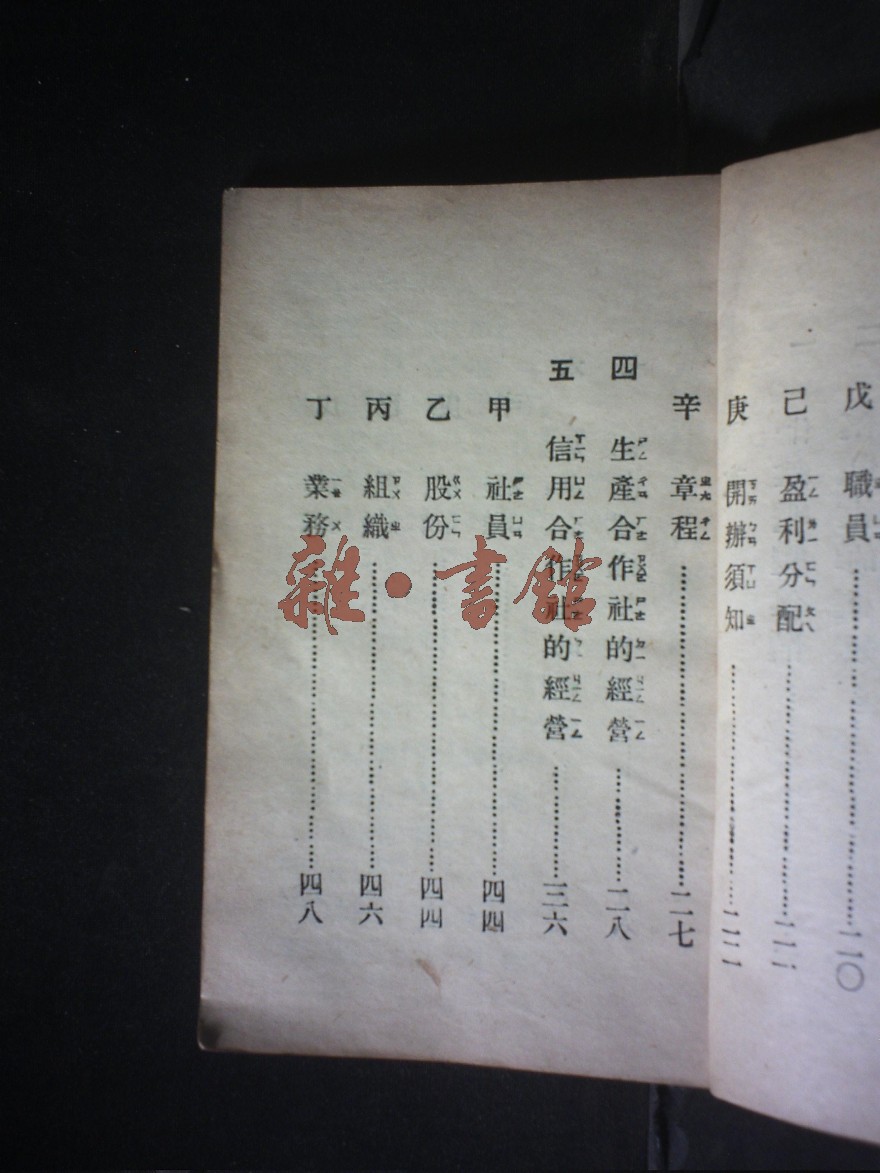 戊 職員……二〇
己 盈利分配……二一
庚 開辦須知……二二
辛 章程……二七
四 生產合作社的經營……二八
五 信用合作社的經營……三六
甲 社員……四四
乙 股份……四四
丙 組織……四六
丁 業務……四八
雜·書館